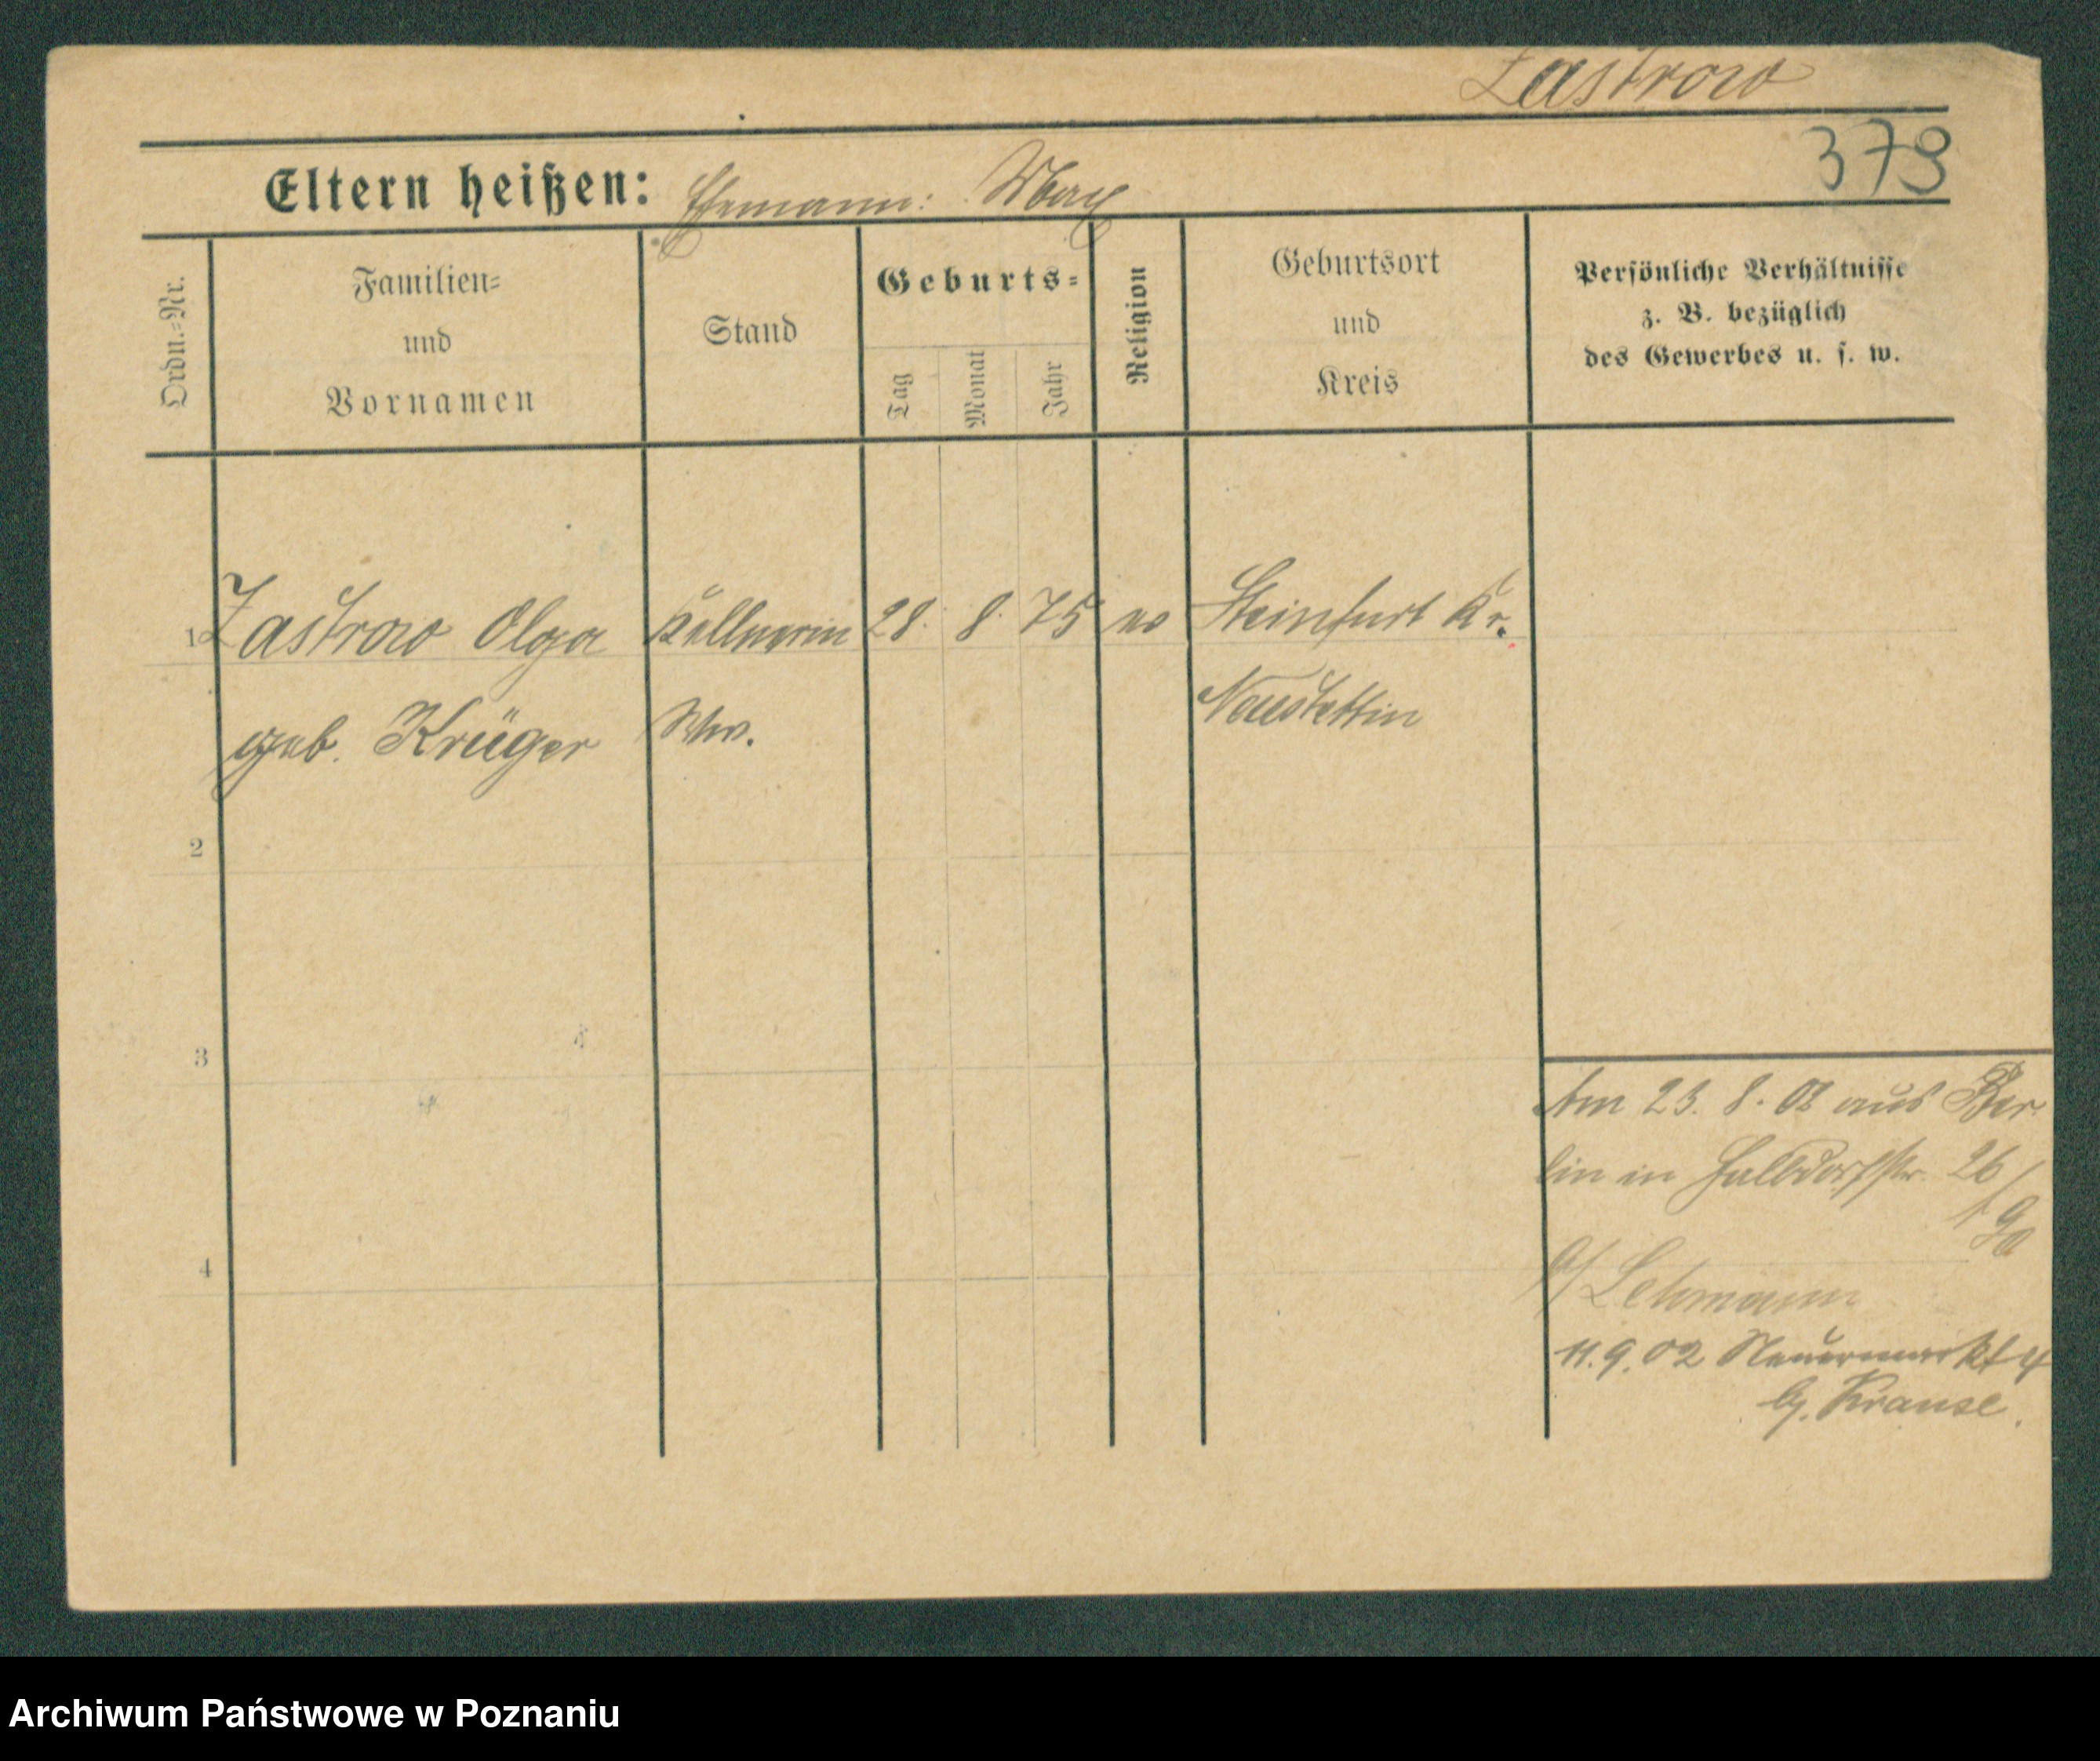 Zastrow
379
Eltern heißen: Ehemann: Max
Ordn.-Nr.
Familien-
und
Vornamen
Stand
Geburts-
Tag
Monat
Jahr
Religion
Geburtsort
und
Kreis
Persönliche Verhältnisse
z. B. bezüglich
des Gewerbes u. s. w.
1 Zastrow Olga Kellnerin 28. 8. 75 ev Steinfurt Kr.
geb. Krüger Ww. Neustettin
2
3
4
Am 23. 8. 02 aus Ber
lin in Halbdorfstr. 26
b/ Lehmann
11. 9. 02 Neuermarkt 4
b/. Krause.
Archiwum Państwowe w Poznaniu